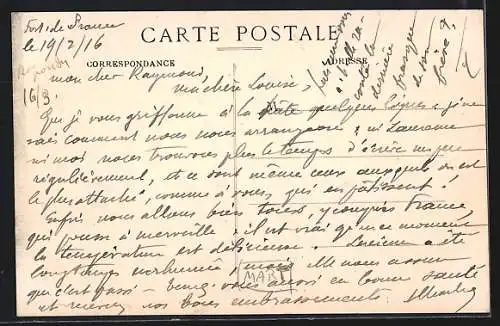 Fort-de-France
le 19/2/16
CARTE POSTALE
CORRESPONDANCE
ADRESSE
mon cher Raymond,
ma chère Louise,
16/3.
Que je vous griffonne à la hâte quelques lignes - je ne
sais comment nous nous arrangeons, ni Laurence
ni moi nous trouvons plus le temps d'écrire un peu
régulièrement, et ce sont même ceux auxquels on est
le plus attaché, comme à vous, qui en pâtissent!
Enfin nous allons bien tous y compris France,
qui pousse à merveille, il est vrai qu'en ce moment
la température est délicieuse. Lucienne a été
longtemps enrhumée, mais elle nous assure
que c'est passé - tenez-vous aussi en bonne santé
et recevez nos bons embrassements.
MART